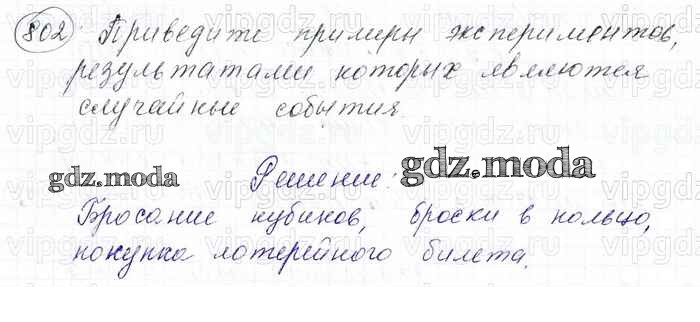 802. Приведите примеры экспериментов,
результатами которых являются
случайные события.
gdz.moda Решение: gdz.moda
Бросание кубиков, броски в кольцо,
покупка лотерейного билета.
vipgdz.ru